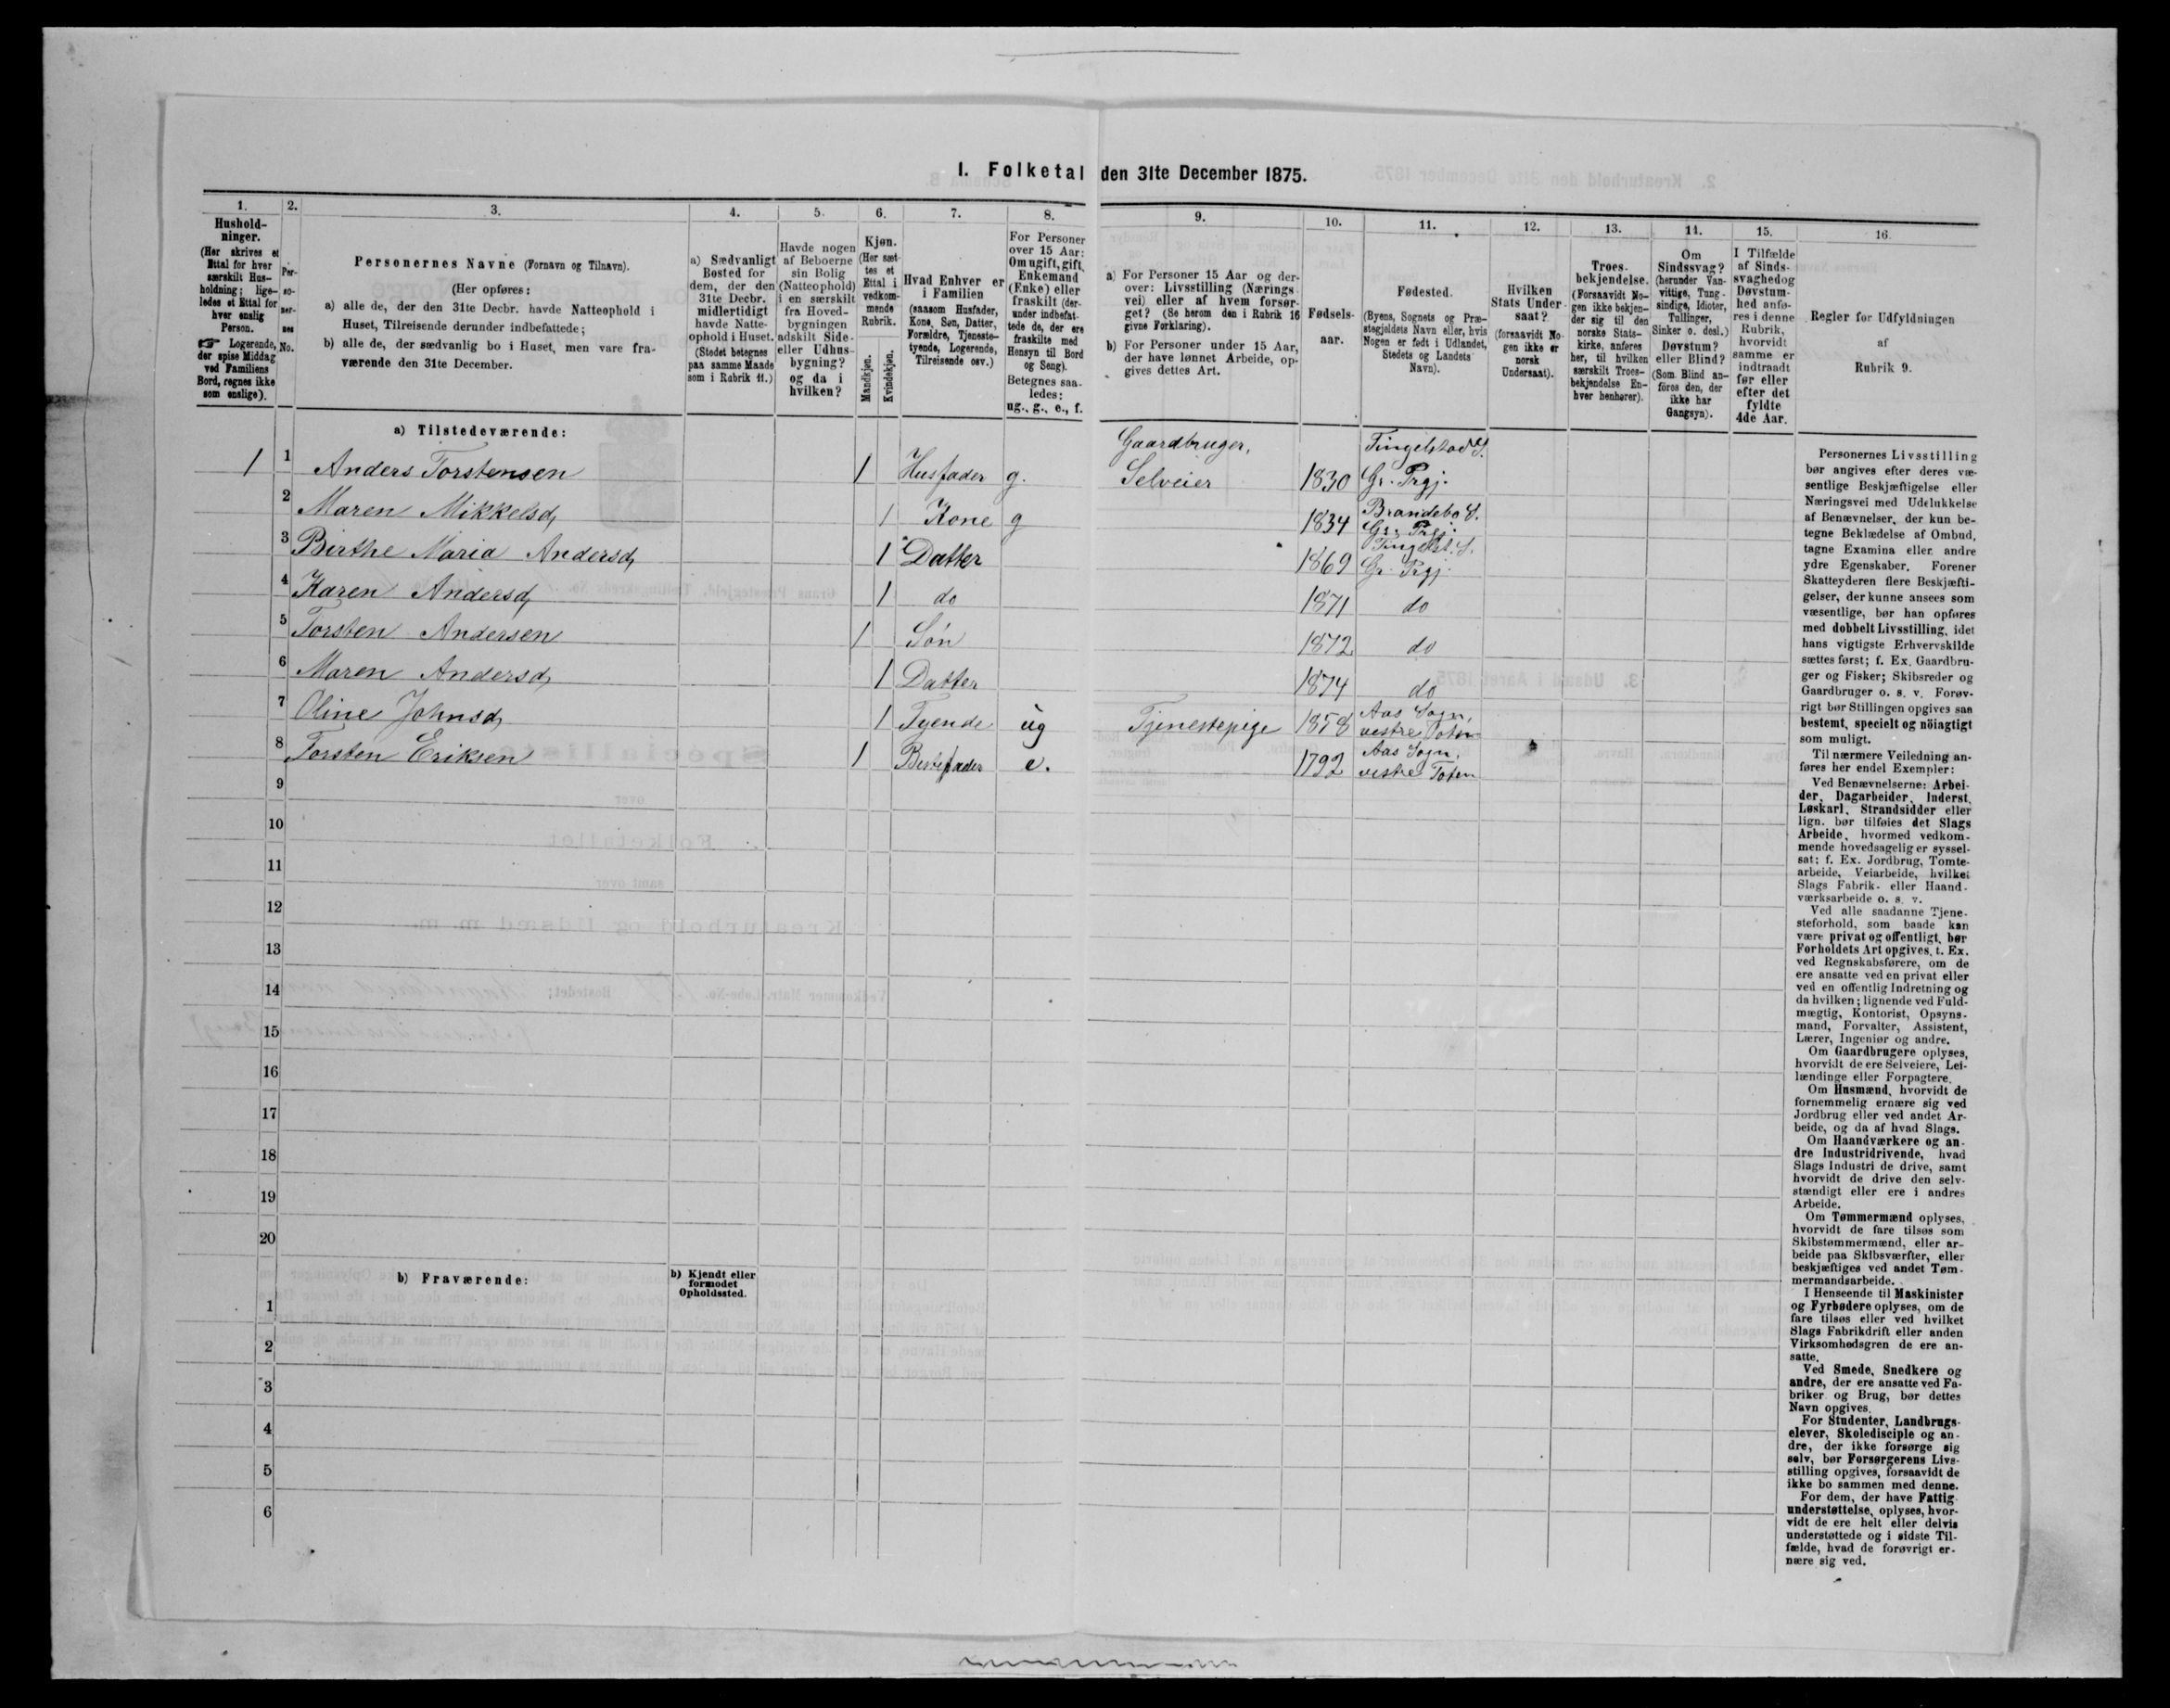 I. Folketal den 31te December 1875.
1.
Hushold-
ninger.
(Her skrives et
Ettal for hver
særskilt Hus-
holdning; lige-
ledes et Ettal for
hver enslig
Person.
☞ Logerende,
der spise Middag
ved Familiens
Bord, regnes ikke
som enslige).
2.
Per-
so-
ner-
nes
No.
3.
Personernes Navne (Fornavn og Tilnavn).
(Her opføres:
a) alle de, der den 31te Decbr. havde Natteophold i
Huset, Tilreisende derunder indbefattede;
b) alle de, der sædvanlig bo i Huset, men vare fra-
værende den 31te December.
4.
a) Sædvanligt
Bosted for
dem, der den
31te Decbr.
midlertidigt
havde Natte-
ophold i Huset.
(Stedet betegnes
paa samme Maade
som i Rubrik 11.)
5.
Havde nogen
af Beboerne
sin Bolig
(Natteophold)
i en særskilt
fra Hoved-
bygningen
adskilt Side-
eller Udhus-
bygning?
og da i
hvilken?
6.
Kjøn.
(Her sæt-
tes et
Ettal i
vedkom-
mende
Rubrik.
Mandkjøn.
Kvindekjøn.
7.
Hvad Enhver er
i Familien
(saasom Husfader,
Kone, Søn, Datter,
Forældre, Tjeneste-
tyende, Logerende,
Tilreisende osv.)
8.
For Personer
over 15 Aar:
Om ugift, gift,
Enkemand
(Enke) eller
fraskilt (der-
under indbefat-
tede de, der ere
fraskilte med
Hensyn til Bord
og Seng).
Betegnes saa-
ledes:
ug., g., e., f.
9.
a) For Personer 15 Aar og der-
over: Livsstilling (Nærings-
vei) eller af hvem forsør-
get? (Se herom den i Rubrik 16
givne Forklaring).
b) For Personer under 15 Aar,
der have lønnet Arbeide, op-
gives dettes Art.
10.
Fødsels-
aar.
11.
Fødested.
(Byens, Sognets og Præ-
stegjeldets Navn eller, hvis
Nogen er født i Udlandet,
Stedets og Landets
Navn).
12.
Hvilken
Stats Under-
saat?
(forsaavidt No-
gen ikke er
norsk
Undersaat).
13.
Troes-
bekjendelse.
(Forsaavidt No-
gen ikke bekjen-
der sig til den
norske Stats-
kirke, anføres
her, til hvilken
særskilt Troes-
bekjendelse En-
hver henhører).
14.
Om
Sindssvag?
(herunder Van-
vittige, Tung-
sindige, Idioter,
Tullinger,
Sinker o. desl.)
Døvstum?
eller Blind?
(Som Blind an-
føres den, der
ikke har
Gangsyn).
15.
I Tilfælde
af Sinds-
svaghed og
Døvstum-
hed anfø-
res i denne
Rubrik,
hvorvidt
samme er
indtraadt
før eller
efter det
fyldte
4de Aar.
16.
Regler for Udfyldningen
af
Rubrik 9.
a) Tilstedeværende:
Gaardbruger, Tingelstad S.
1 1 Anders Torstensen 1 Husfader g. Selveier 1830 Gr. Prgj.
Brandebo S.
2 Maren Mikkelsd, 1 Kone g 1834 Gr. Prgj.
Tingelst. S.
3 Birthe Maria Andersd, 1 Datter 1869 Gr. Prgj.
4 Karen Andersd, 1 do 1871 do
5 Torsten Andersen 1 Søn 1872 do
6 Maren Andersd, 1 Datter 1874 do
Aas Sogn,
7 Oline Johnsd, 1 Tyende ug Tjenestepige 1858 vestre Toten
Aas Sogn,
8 Torsten Eriksen 1 Bestefader e. 1792 vestre Toten
9
10
11
12
13
14
15
16
17
18
19
20
b) Fraværende:
b) Kjendt eller
formodet
Opholdssted.
1
2
3
4
5
6
Personernes Livsstilling
bør angives efter deres væ-
sentlige Beskjæftigelse eller
Næringsvei med Udelukkelse
af Benævnelser, der kun be-
tegne Beklædelse af Ombud,
tagne Examina eller andre
ydre Egenskaber. Forener
Skatteyderen flere Beskjæfti-
gelser, der kunne ansees som
væsentlige, bør han opføres
med dobbelt Livsstilling, idet
hans vigtigste Erhvervskilde
sættes først; f. Ex. Gaardbru-
ger og Fisker; Skibsreder og
Gaardbruger o. s. v. Forøv-
rigt bør Stillingen opgives saa
bestemt, specielt og nöiagtigt
som muligt.
Til nærmere Veiledning an-
føres her endel Exempler:
Ved Benævnelserne: Arbei-
der, Dagarbeider, Inderst,
Løskarl, Strandsidder eller
lign. bør tilføies det Slags
Arbeide, hvormed vedkom-
mende hovedsagelig er syssel-
sat; f. Ex. Jordbrug, Tomte-
arbeide, Veiarbeide, hvilket
Slags Fabrik- eller Haand-
værksarbeide o. s. v.
Ved alle saadanne Tjene-
steforhold, som baade kan
være privat og offentligt, bør
Forholdets Art opgives, t. Ex.
ved Regnskabsførere, om de
ere ansatte ved en privat eller
ved en offentlig Indretning og
da hvilken; lignende ved Fuld-
mægtig, Kontorist, Opsyns-
mand, Forvalter, Assistent,
Lærer, Ingeniør og andre.
Om Gaardbrugere oplyses,
hvorvidt de ere Selveiere, Lei-
lændinge eller Forpagtere.
Om Husmænd, hvorvidt de
fornemmelig ernære sig ved
Jordbrug eller ved andet Ar-
beide, og da af hvad Slags.
Om Haandværkere og an-
dre Industridrivende, hvad
Slags Industri de drive, samt
hvorvidt de drive den selv-
stændigt eller ere i andres
Arbeide.
Om Tømmermænd oplyses,
hvorvidt de fare tilsøs som
Skibstømmermænd, eller ar-
beide paa Skibsværfter, eller
beskjæftiges ved andet Tøm-
mermandsarbeide.
I Henseende til Maskinister
og Fyrbødere oplyses, om de
fare tilsøs eller ved hvilket
Slags Fabrikdrift eller anden
Virksomhedsgren de ere an-
satte.
Ved Smede, Snedkere og
andre, der ere ansatte ved Fa-
briker og Brug, bør dettes
Navn opgives.
For Studenter, Landbrugs-
elever, Skoledisciple og an-
dre, der ikke forsørge sig
selv, bør Forsørgerens Livs-
stilling opgives, forsaavidt de
ikke bo sammen med denne.
For dem, der have Fattig-
understøttelse, oplyses, hvor-
vidt de ere helt eller delvis
understøttede og i sidste Til-
fælde, hvad de forøvrigt er-
nære sig ved.